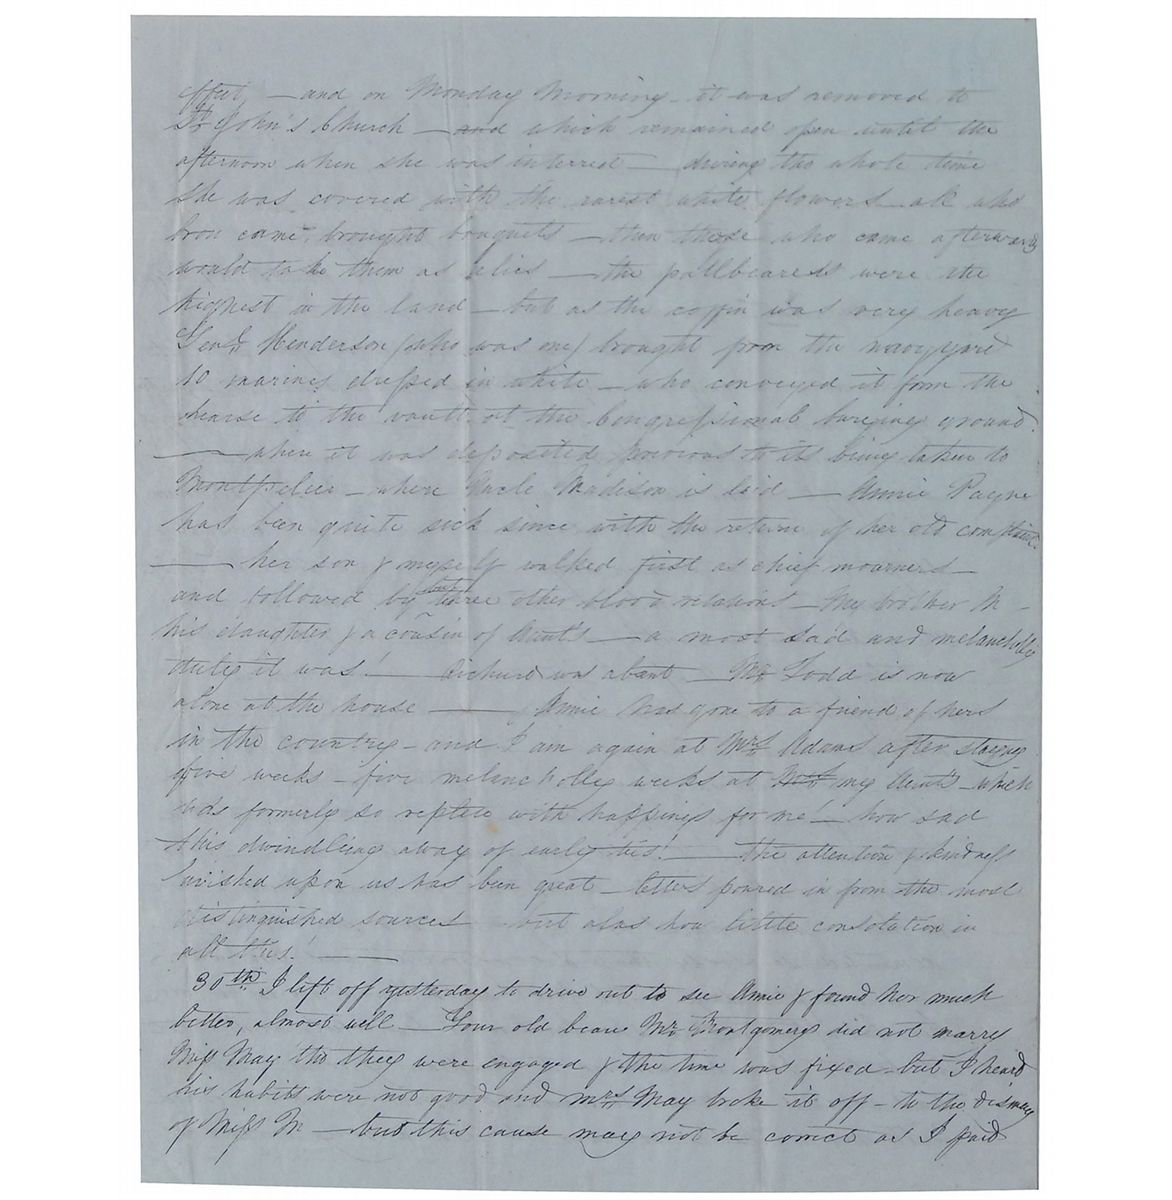 effect — and on Monday Morning it was removed to
St. John's Church — and which remained open until the
afternoon when she was interred — during the whole time
she was covered with the rarest white flowers all who
come, brought bouquets — then those who came afterwards
would take them as relics — the pallbearers were the
highest in the land — but as the coffin was very heavy
Genl. Henderson (who was one) brought from the navy yard
10 marines dressed in white — who conveyed it from the
hearse to the vault at the Congressional burying ground
— where it was deposited previous to its being taken to
Montpelier — where Uncle Madison is laid — Annie Payne
has been quite sick since with the return of her old complaint
— her son & myself walked first as chief mourners —
and followed by but three other blood relations — My brother M —
his daughter & a cousin of Aunt's — a most sad and melancholy
duty it was! — Richard was absent — Mr. Todd is now
alone at the house — & Annie has gone to a friend of hers
in the country — and I am again at Mrs. Adams after staying
five weeks — five melancholly weeks at my Aunt's — which
was formerly so replete with happiness for me! — how sad
this dwindling away of early ties! — The attention & kindness
lavished upon us has been great — letters poured in from the most
distinguished sources — but alas how little consolation in
all this! —
30th. I left off yesterday to drive out to see Annie & found her much
better, almost well — Your old beau Mr. Montgomery did not marry
Miss May tho' they were engaged & the time was fixed — but I heard
his habits were not good and Mrs. May broke it off — to the dismay
of Miss M — but this cause may not be correct as I paid